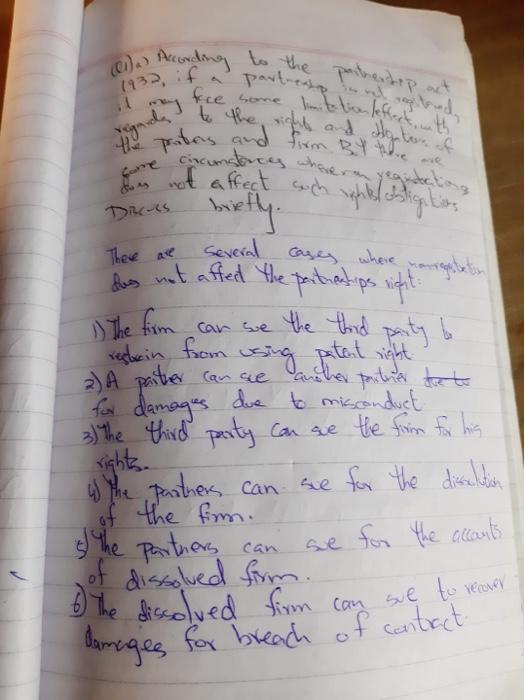 Q1)a) According to the partnership act
1932, if a partnership is not registered,
it may face some limitation/effect, with
regards to the right and obligations of
the partners and firm. But there are
some circumstances where non registration
does not affect such rights/obligations
Discuss briefly.
There are several cases where nonregistration
does not affect the partnerships right:
1) The firm can sue the third party to
restrain from using patent right
2) A partner can sue another partner due to
for damages due to misconduct
3) The third party can sue the firm for his
rights.
4) The partners can sue for the dissolution
of the firm.
5) The partners can sue for the accounts
of dissolved firm.
6) The dissolved firm can sue to recover
damages for breach of contract.